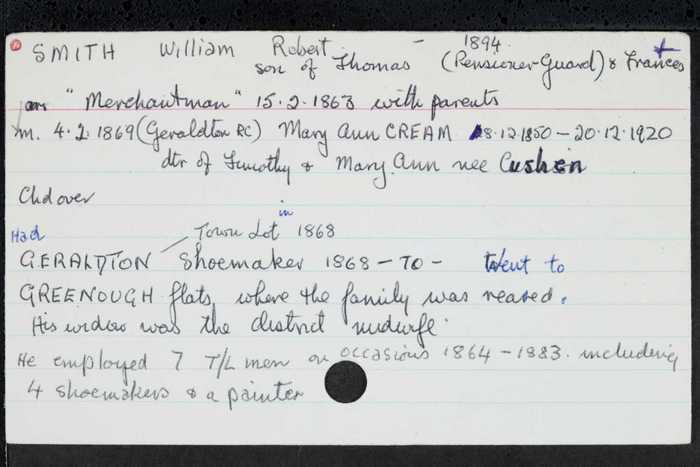 SMITH William Robert - 1894
son of Thomas (Pensioner Guard) & Frances
arr "Merchantman" 15.2.1863 with parents
m. 4.2.1869 (Geraldton RC) Mary Ann CREAM 8.12.1850 - 20.12.1920
dtr of Timothy & Mary Ann nee Cushen
Chd over
Had Town Lot in 1868
GERALDTON Shoemaker 1868 - TO - Went to
GREENOUGH flats, where the family was reared.
His widow was the district midwife.
He employed 7 T/L men on occasions 1864 - 1883. including
4 shoemakers & a painter